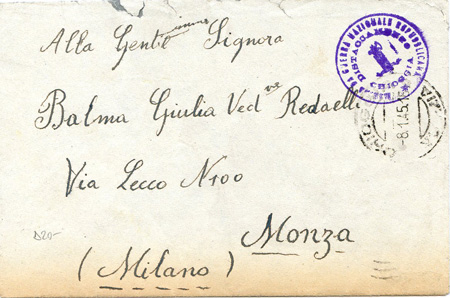 Alla Gentilissima Signora
Balma Giulia Ved.ve Redaelli
Via Lecco N 100
Monza
(Milano)
D20-
MARINA DA GUERRA NAZIONALE REPUBBLICANA
DISTACCAMENTO
CHIOGGIA
8.1.45